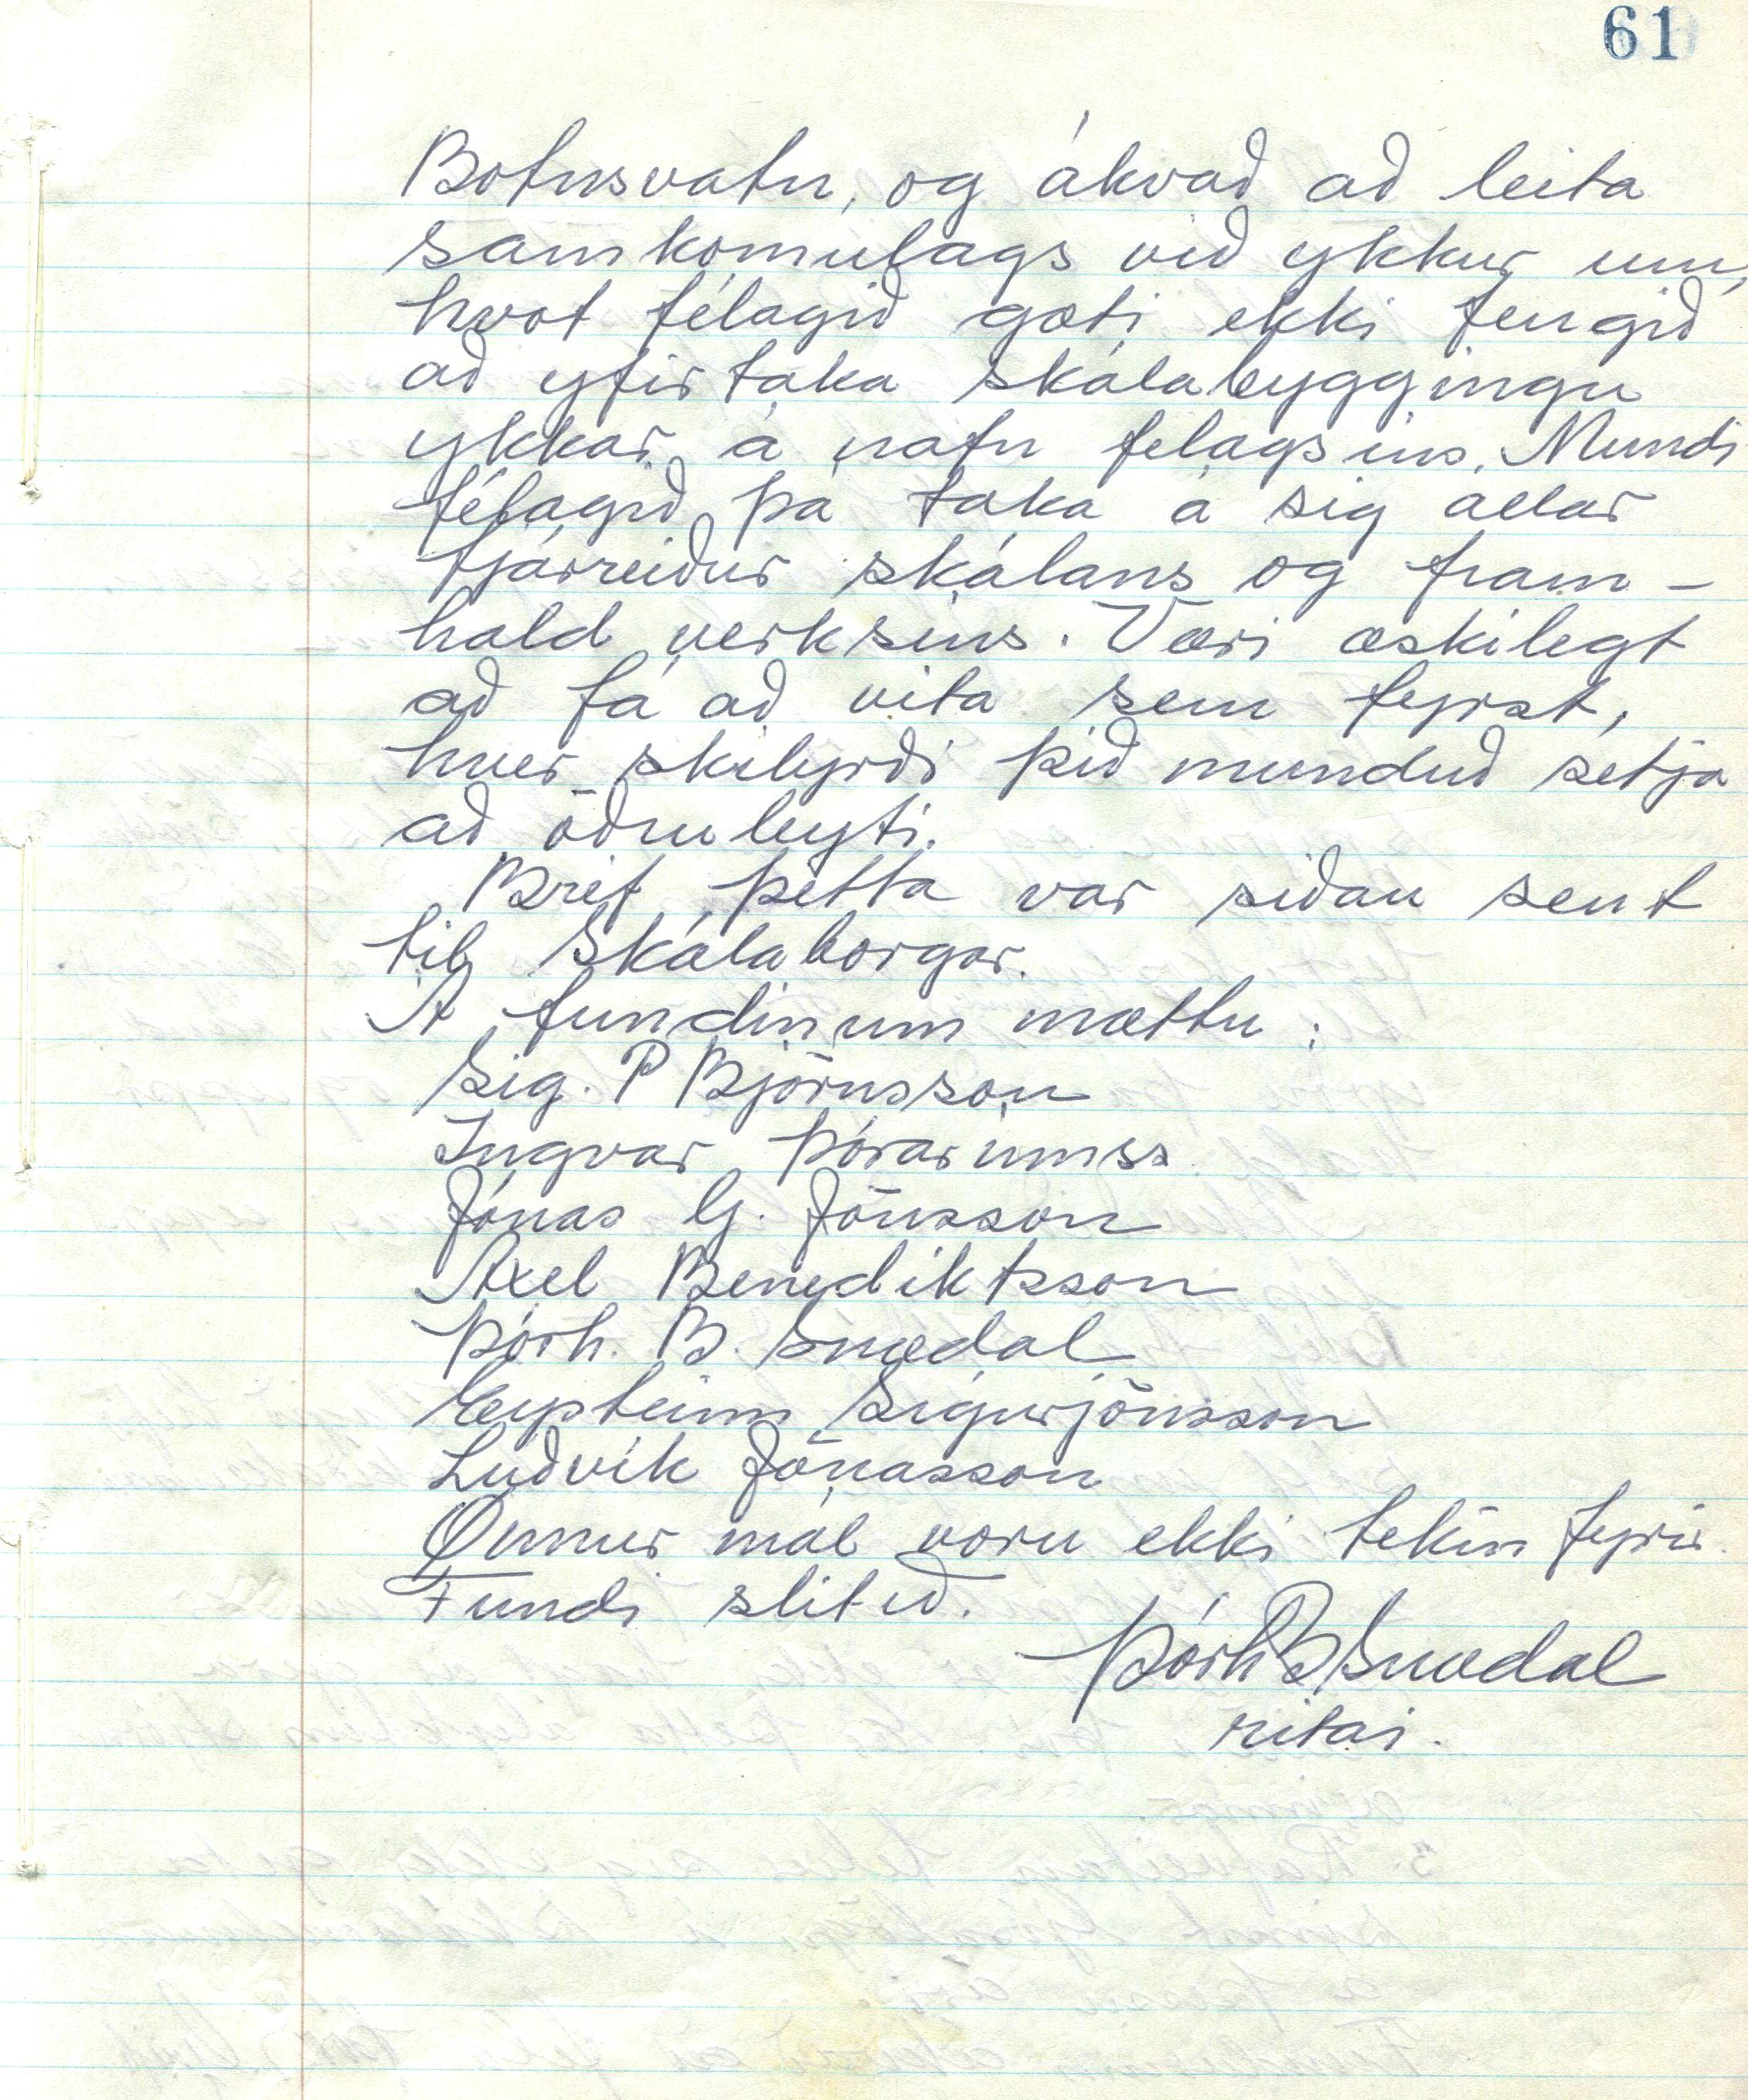 61
Botnsvatn, og ákvað að leita
samkomulags við ykkur um,
hvot félagið gæti ekki fengið
að yfirtaka skálabyggingu
ykkar á nafn félagsins. Mundi
félagið þá taka á sig allar
fjárreiður skálans og fram-
hald verksins. Væri æskilegt
að fá að vita sem fyrst,
hver skilyrði þið munduð setja
að öðru leyti.
Bréf þetta var síðan sent
til Skálaborgar.
Á fundinum mættu:
Sig. P Björnsson
Ingvar Þórarinnss
Jónas G. Jónsson
Axel Benediktsson
Þórh. B. Snædal
Eysteinn Sigurjónsson
Luðvík Jónasson
Önnur mál voru ekki tekin fyrir.
Fundi slitið.
Þórh B Snædal
ritari.